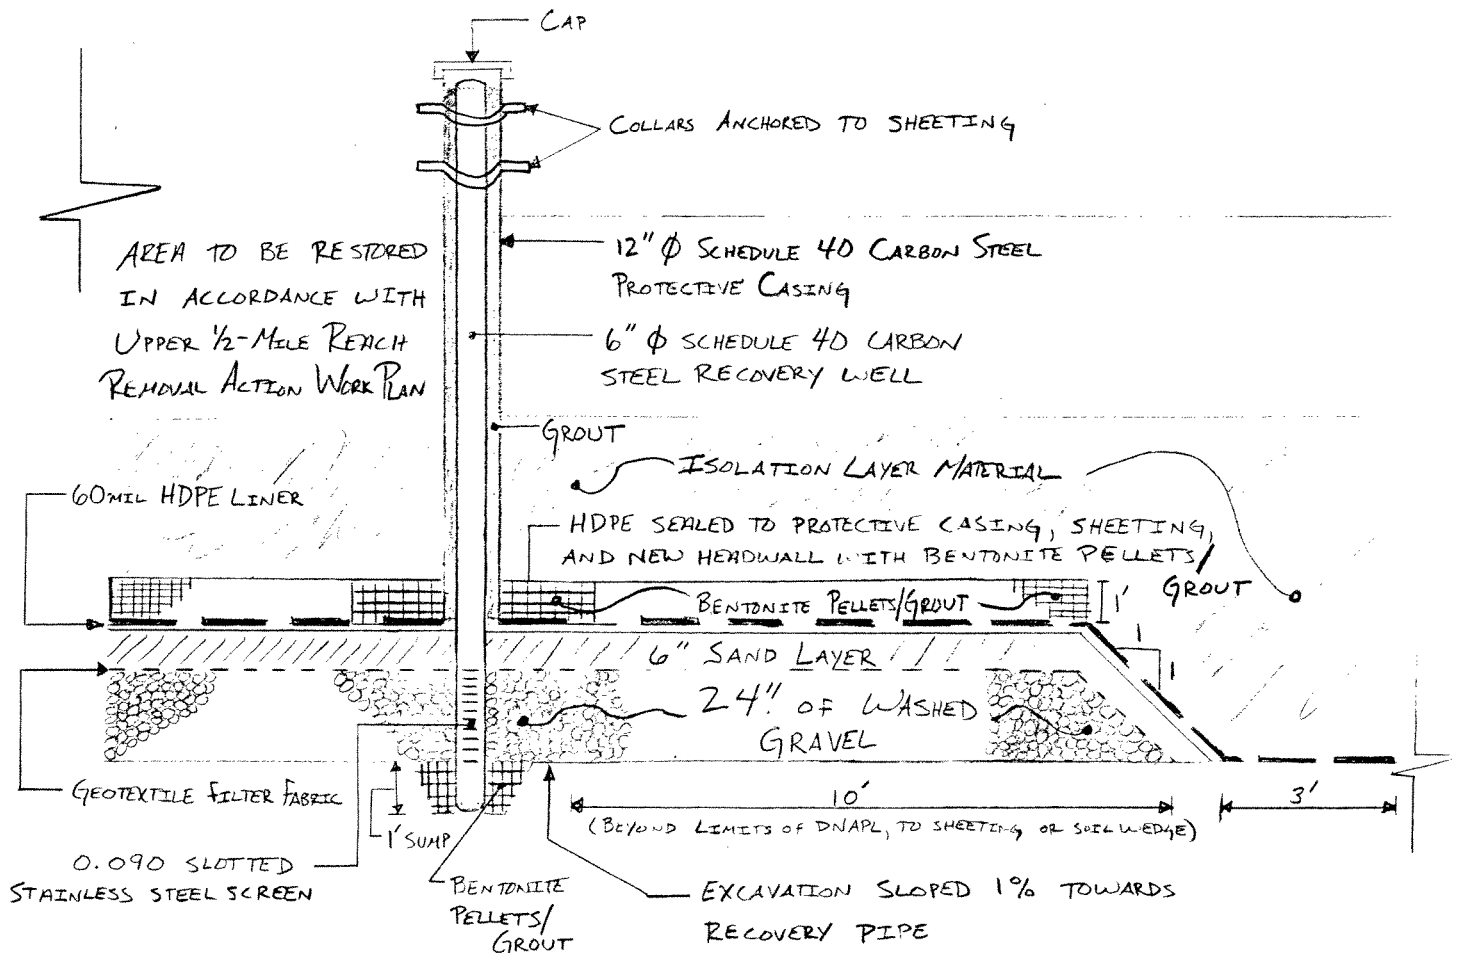 CAP
COLLARS ANCHORED TO SHEETING
AREA TO BE RESTORED
IN ACCORDANCE WITH
UPPER 1/2-MILE REACH
REMOVAL ACTION WORK PLAN
12" Φ SCHEDULE 40 CARBON STEEL
PROTECTIVE CASING
6" Φ SCHEDULE 40 CARBON
STEEL RECOVERY WELL
GROUT
ISOLATION LAYER MATERIAL
60 MIL HDPE LINER
HDPE SEALED TO PROTECTIVE CASING, SHEETING,
AND NEW HEADWALL WITH BENTONITE PELLETS/
GROUT
BENTONITE PELLETS/GROUT
1'
1
1
6" SAND LAYER
24" OF WASHED
GRAVEL
GEOTEXTILE FILTER FABRIC
1' SUMP
10'
(BEYOND LIMITS OF DNAPL, TO SHEETING OR SOIL WEDGE)
3'
0.090 SLOTTED
STAINLESS STEEL SCREEN
BENTONITE
PELLETS/
GROUT
EXCAVATION SLOPED 1% TOWARDS
RECOVERY PIPE